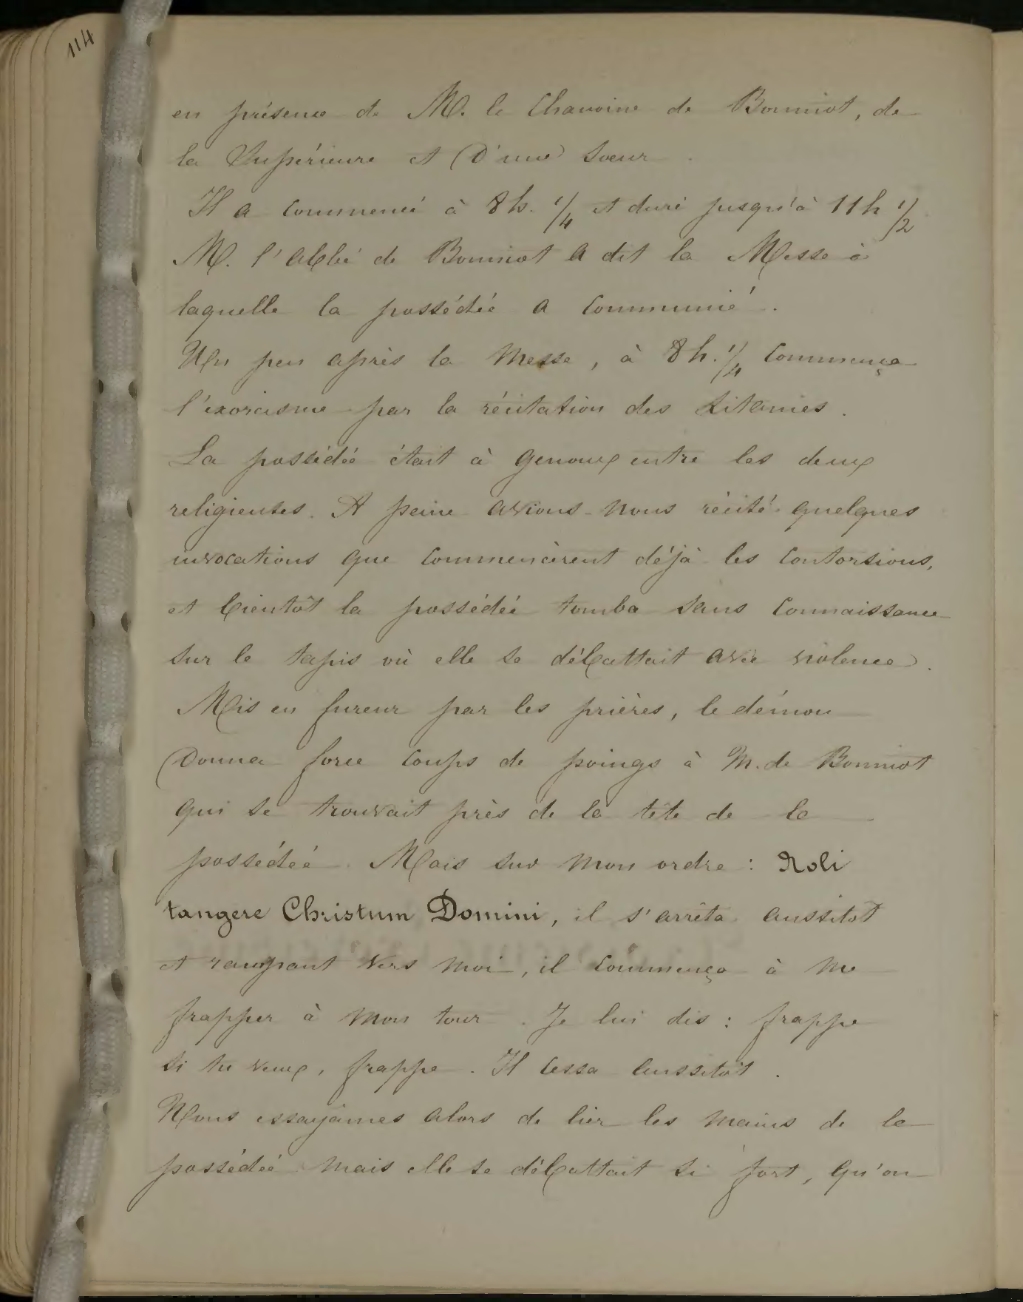 114
en présence de M. le Chanoine de Bonniot, de
la Supérieure et d'une soeur.
Il a commencé à 8h. 1/4 et duré jusqu'à 11h 1/2
M. l'abbé de Bonniot a dit la Messe à
laquelle la possédée a communié.
Un peu après la Messe, à 8h. 1/4 commença
l'exorcisme par la récitation des Litanies.
La possédée était à genoux entre les deux
religieuses. A peine avions-nous récité quelques
invocations que commencèrent déjà les contorsions,
et bientôt la possédée tomba sans connaissance
sur le tapis où elle se débattait avec violence.
Mis en fureur par les prières, le démon
donna force coups de poings à M. de Bonniot
qui se trouvait près de la tête de la
possédée. Mais sur mon ordre : Noli
tangere Christum Domini, il s'arrêta aussitôt
et rampant vers moi, il commença à me
frapper à mon tour. Je lui dis : frappe
si tu veux, frappe. Il cessa aussitôt.
Nous essayâmes alors de lier les mains de la
possédée mais elle se débattait si fort, qu'on